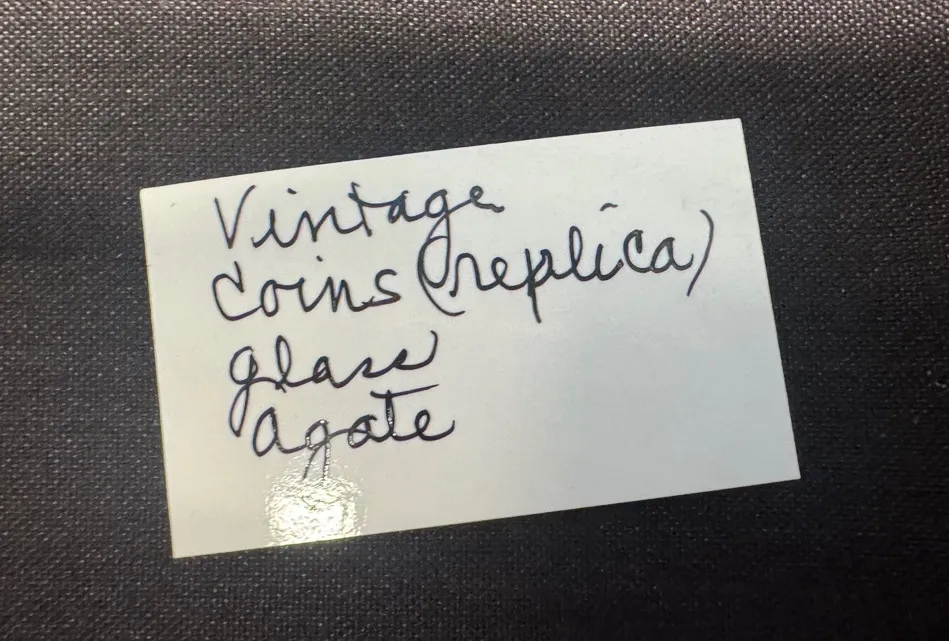 Vintage
coins (replica)
glass
agate